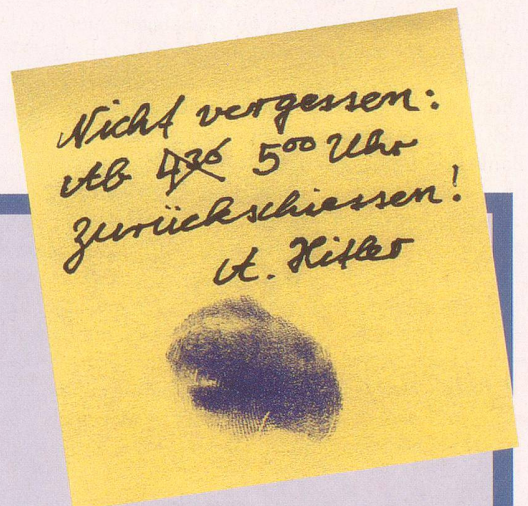 Nicht vergessen:
Ab 436 5⁰⁰ Uhr
zurückschiessen!
A. Hitler